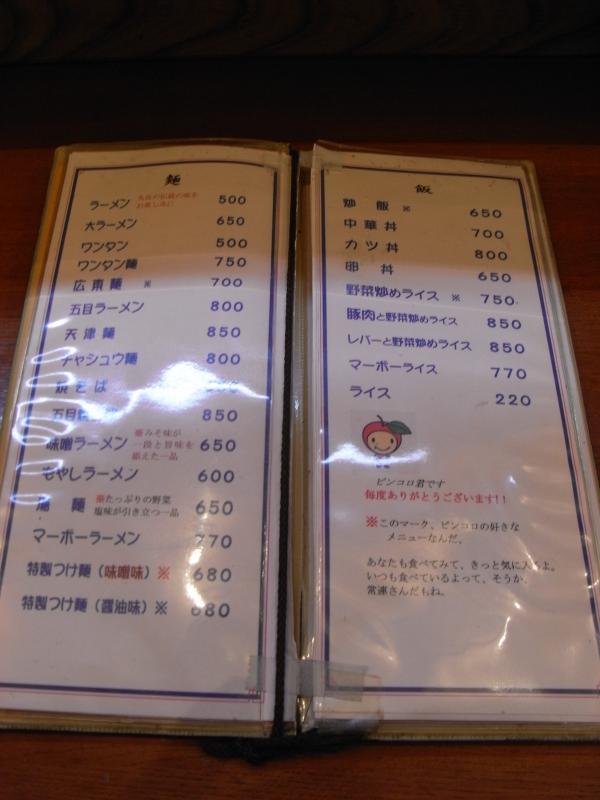 麺
ラーメン 先代の伝統の味を 500
お楽しみに
大ラーメン 650
ワンタン 500
ワンタン麺 750
広東麺 ※ 700
五目ラーメン 800
天津麺 850
チャシュウ麺 800
焼きそば
五目 850
味噌ラーメン ※みそ味が 650
一段と旨味を
添えた一品
もやしラーメン 600
湯麺 ※たっぷりの野菜 650
塩味が引き立つ一品
マーボーラーメン 770
特製つけ麺（味噌味）※ 680
特製つけ麺（醤油味）※ 680
飯
炒飯 ※ 650
中華丼 700
カツ丼 800
卵丼 650
野菜炒めライス ※ 750
豚肉と野菜炒めライス 850
レバーと野菜炒めライス 850
マーボーライス 770
ライス 220
ピンコロ君です
毎度ありがとうございます!!
※このマーク、ピンコロの好きな
メニューなんだ。
あなたも食べてみて、きっと気に入るよ。
いつも食べているよって、そうか、
常連さんだもね。